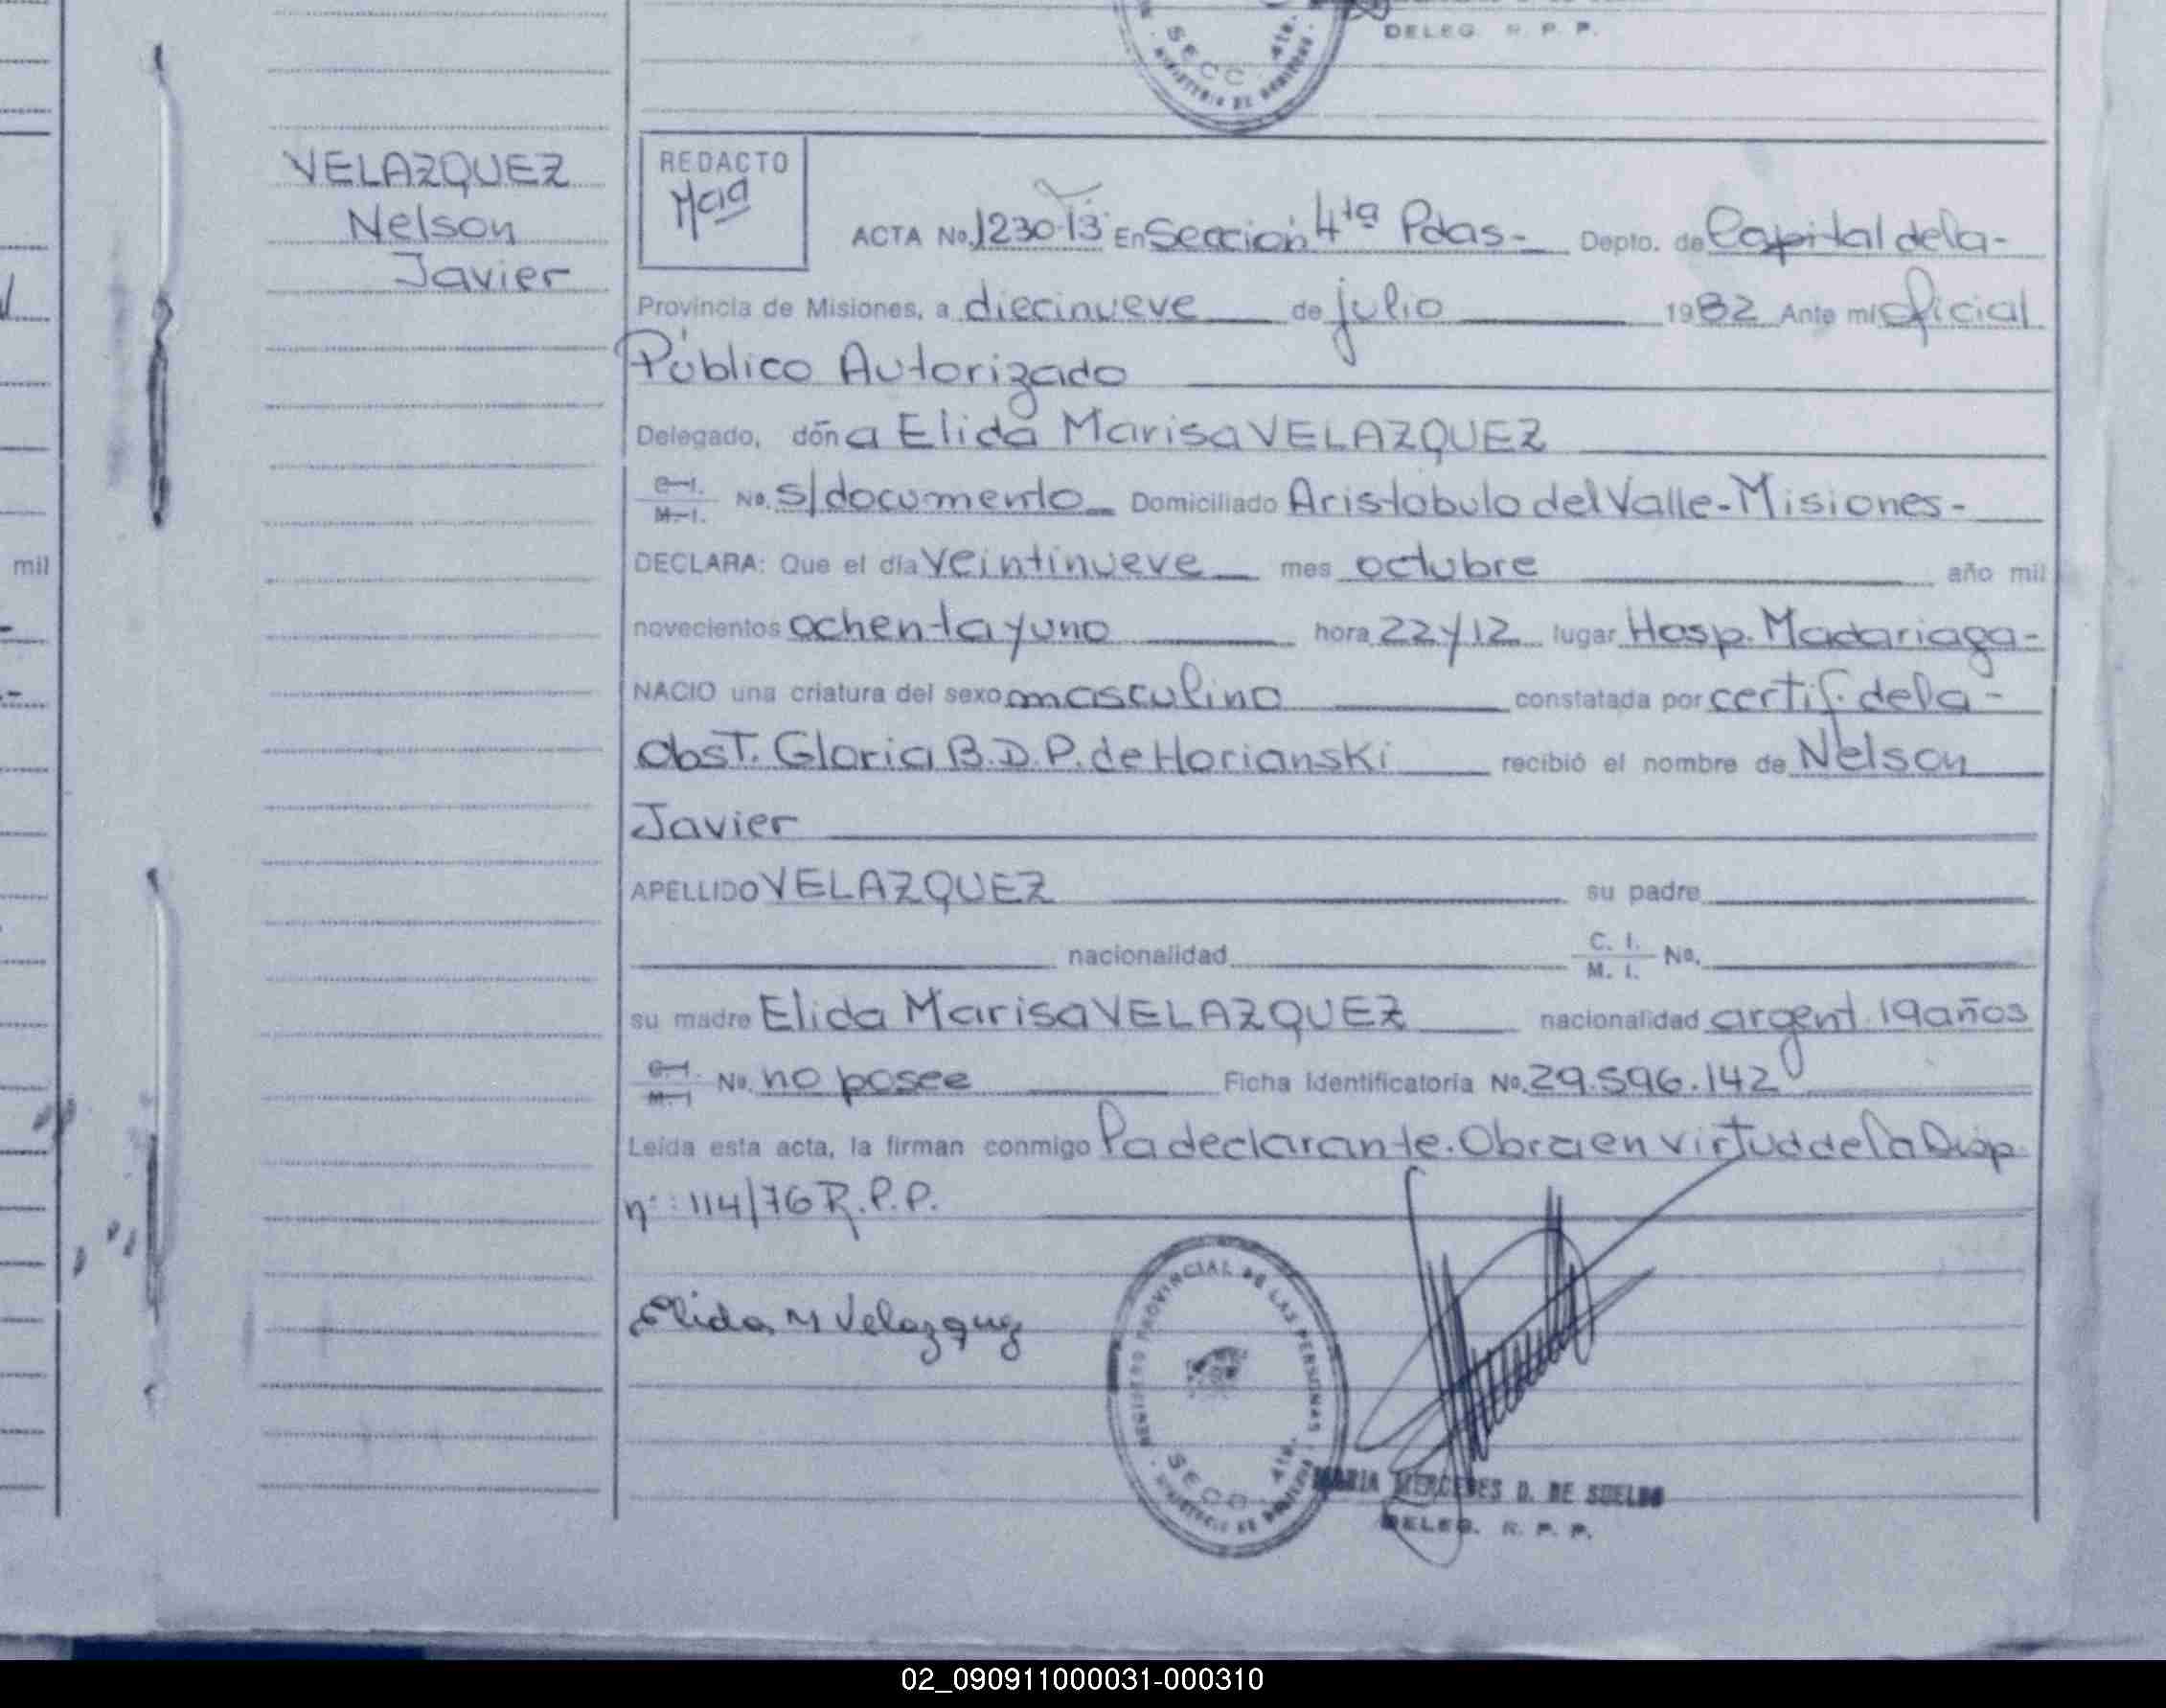 DELEG. R. P. P.
SECC. 4ta.
VELAZQUEZ
Nelson
Javier
REDACTO
ACTA No. 1230-T3 En Sección 4ta Pdas- Depto. de Capital de la-
Provincia de Misiones, a diecinueve de julio 1982 Ante mi Oficial
Público Autorizado
Delegado, dóña Elida Marisa VELAZQUEZ
C.I. M.I. No. s/documento Domiciliado Aristobulo del Valle-Misiones-
DECLARA: Que el día veintinueve mes octubre año mil
mil
novecientos ochenta y uno hora 22 y 12 lugar Hosp. Madariaga-
NACIO una criatura del sexo masculino constatada por certif. de la-
Obst. Gloria B.D.P. de Horianski recibió el nombre de Nelson
Javier
APELLIDO VELAZQUEZ su padre
nacionalidad C. I. M. I. No.
su madre Elida Marisa VELAZQUEZ nacionalidad argent. 19 años
C.I. M.I No. no posee Ficha Identificatoria No. 29.596.142
Leída esta acta, la firman conmigo la declarante. Obra en virtud de la Disp.
n°: 114/76 R.P.P.
Elida M Velazquez
REGISTRO PROVINCIAL DE LAS PERSONAS
SECC. 4ta.
MARIA MERCEDES D. DE SUELDO
DELEG. R. P. P.
02_090911000031-000310